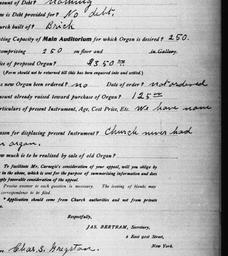 ount of Debt? nothing
e is Debt provided for? No debt.
urch built of? Brick
ting Capacity of Main Auditorium for which Organ is desired? 250.
omprising 250 on floor and in Gallery.
ice of proposed Organ?
(Form should not be returned till this has been enquired into and settled.)
new Organ been ordered? no Date of order? not ordered
mount already raised toward purchase of Organ? 125
articulars of present Instrument, Age, Cost Price, Etc. We have none
eason for displacing present Instrument? Church never had
organ.
ow much is to be realized by sale of old Organ?
To facilitate Mr. Carnegie's consideration of your appeal, will you oblige by
in the above, which is sent for the purpose of summarizing information and does
ply favorable consideration of the appeal.
Precise answer to each question is necessary. The issuing of blanks may
correspondence to be filed.
* Application should come from Church authorities and not from private
Respectfully,
JAS. BERTRAM, Secretary,
2 East 91st Street,
New York.
Chas. S.